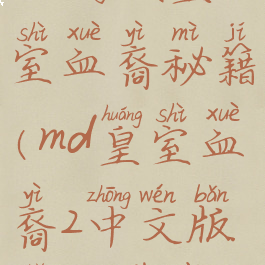 shì xuè yì mì jí
室血裔秘籍
huáng shì xuè
(md皇室血
yì zhōng wén bǎn
裔2中文版